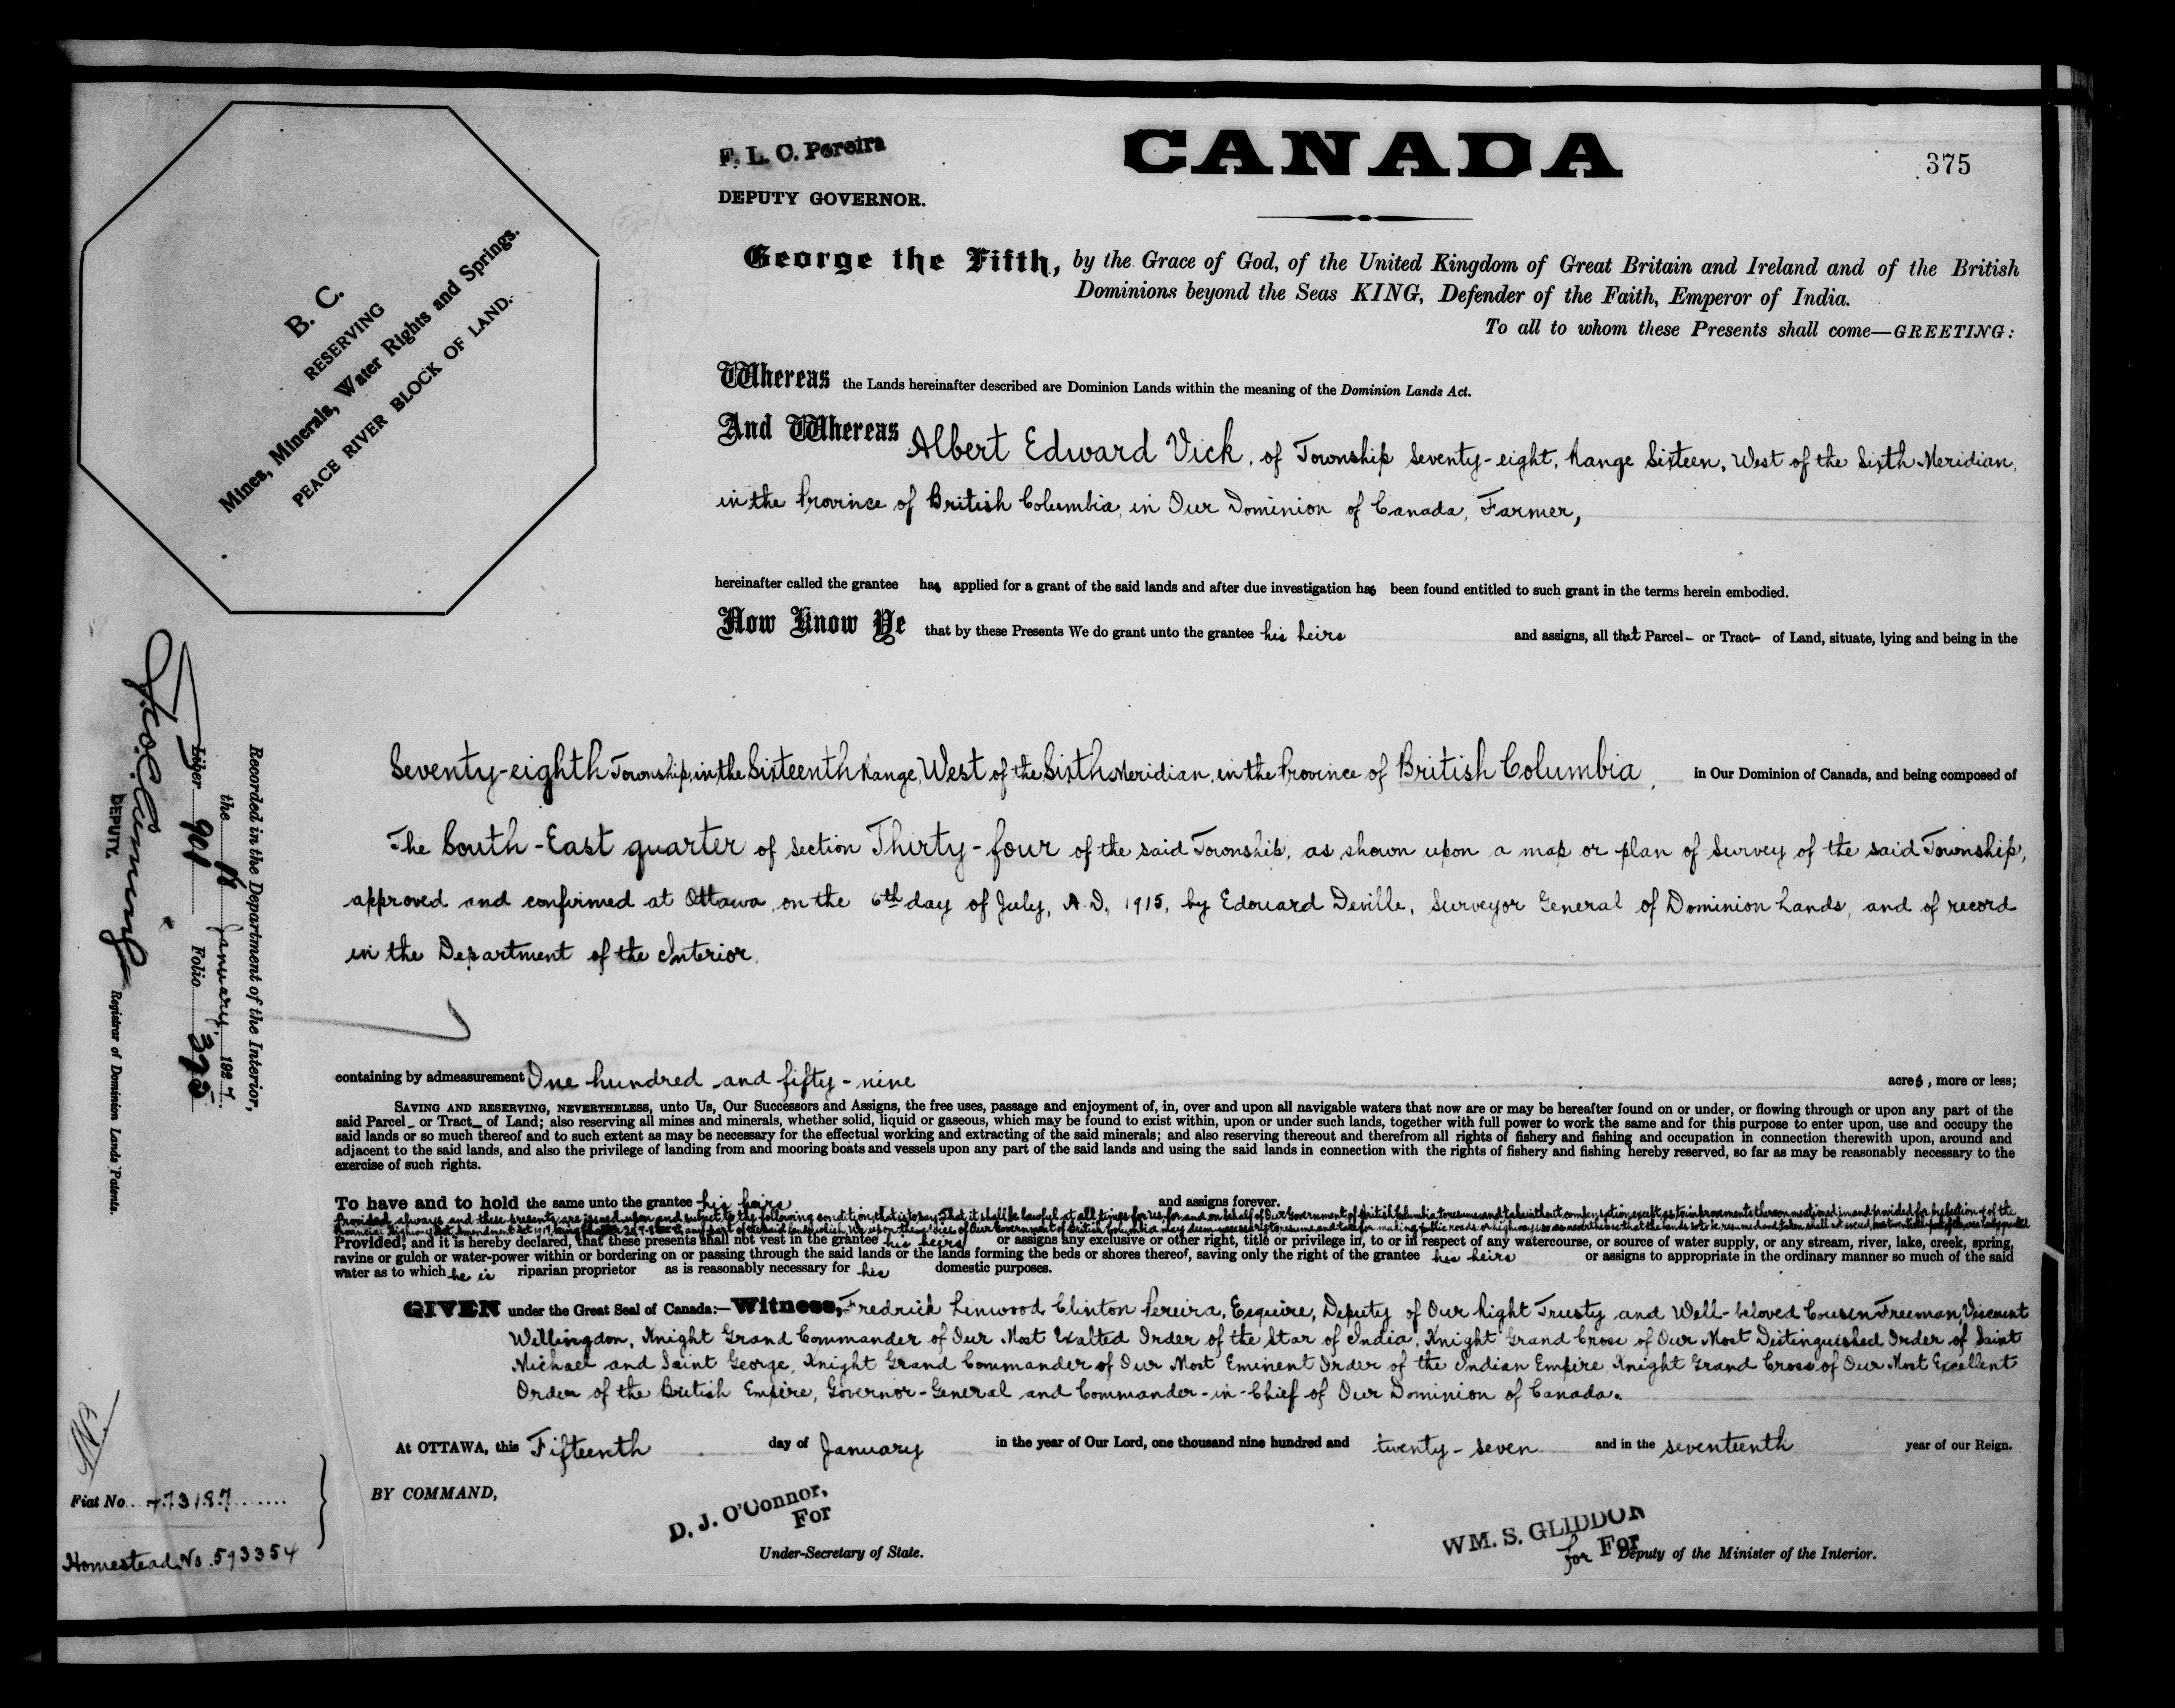 F. L. C. Pereira
DEPUTY GOVERNOR.
CANADA
375
B. C.
RESERVING
Mines, Minerals, Water Rights and Springs.
PEACE RIVER BLOCK OF LAND.
George the Fifth, by the Grace of God, of the United Kingdom of Great Britain and Ireland and of the British
Dominions beyond the Seas KING, Defender of the Faith, Emperor of India.
To all to whom these Presents shall come—GREETING:
Whereas the Lands hereinafter described are Dominion Lands within the meaning of the Dominion Lands Act.
And Whereas Albert Edward Vick, of Township Seventy-eight, Range Sixteen, West of the Sixth Meridian,
in the Province of British Columbia, in Our Dominion of Canada, Farmer,
hereinafter called the grantee has applied for a grant of the said lands and after due investigation has been found entitled to such grant in the terms herein embodied.
Now Know Ye that by these Presents We do grant unto the grantee his heirs and assigns, all that Parcel- or Tract- of Land, situate, lying and being in the
Seventy-eighth Township, in the Sixteenth Range, West of the Sixth Meridian, in the Province of British Columbia, in Our Dominion of Canada, and being composed of
The South-East quarter of Section Thirty-four of the said Township, as shown upon a map or plan of Survey of the said Township,
approved and confirmed at Ottawa, on the 6th day of July, A.D. 1915, by Edouard Deville, Surveyor General of Dominion Lands, and of record
in the Department of the Interior.
containing by admeasurement One hundred and fifty-nine acres, more or less;
SAVING AND RESERVING, NEVERTHELESS, unto Us, Our Successors and Assigns, the free uses, passage and enjoyment of, in, over and upon all navigable waters that now are or may be hereafter found on or under, or flowing through or upon any part of the
said Parcel- or Tract- of Land; also reserving all mines and minerals, whether solid, liquid or gaseous, which may be found to exist within, upon or under such lands, together with full power to work the same and for this purpose to enter upon, use and occupy the
said lands or so much thereof and to such extent as may be necessary for the effectual working and extracting of the said minerals; and also reserving thereout and therefrom all rights of fishery and fishing and occupation in connection therewith upon, around and
adjacent to the said lands, and also the privilege of landing from and mooring boats and vessels upon any part of the said lands and using the said lands in connection with the rights of fishery and fishing hereby reserved, so far as may be reasonably necessary to the
exercise of such rights.
To have and to hold the same unto the grantee his heirs and assigns forever.
Provided always and these presents are issued upon and subject to the following condition, that is to say, That it shall be lawful at all times for us for and on behalf of Our Government of British Columbia to resume and take without compensation
Provided, and it is hereby declared, that these presents shall not vest in the grantee his heirs or assigns any exclusive or other right, title or privilege in, to or in respect of any watercourse, or source of water supply, or any stream, river, lake, creek, spring,
ravine or gulch or water-power within or bordering on or passing through the said lands or the lands forming the beds or shores thereof, saving only the right of the grantee his heirs or assigns to appropriate in the ordinary manner so much of the said
water as to which he is riparian proprietor as is reasonably necessary for his domestic purposes.
GIVEN under the Great Seal of Canada:—Witness, Fredrick Linwood Clinton Pereira, Esquire, Deputy of Our Right Trusty and Well-beloved Cousin Freeman, Viscount
Willingdon, Knight Grand Commander of Our Most Exalted Order of the Star of India, Knight Grand Cross of Our Most Distinguished Order of Saint
Michael and Saint George, Knight Grand Commander of Our Most Eminent Order of the Indian Empire, Knight Grand Cross of Our Most Excellent
Order of the British Empire, Governor-General and Commander-in-Chief of Our Dominion of Canada.
At OTTAWA, this Fifteenth day of January in the year of Our Lord, one thousand nine hundred and twenty-seven and in the seventeenth year of our Reign.
BY COMMAND,
D. J. O'Connor,
For
Under-Secretary of State.
WM. S. GLIDDON
for For
Deputy of the Minister of the Interior.
Recorded in the Department of the Interior,
the January, 1927.
Liber 901 Folio 375
DEPUTY. Registrar of Dominion Lands Patents.
Fiat No. 473187
Homestead No. 593354